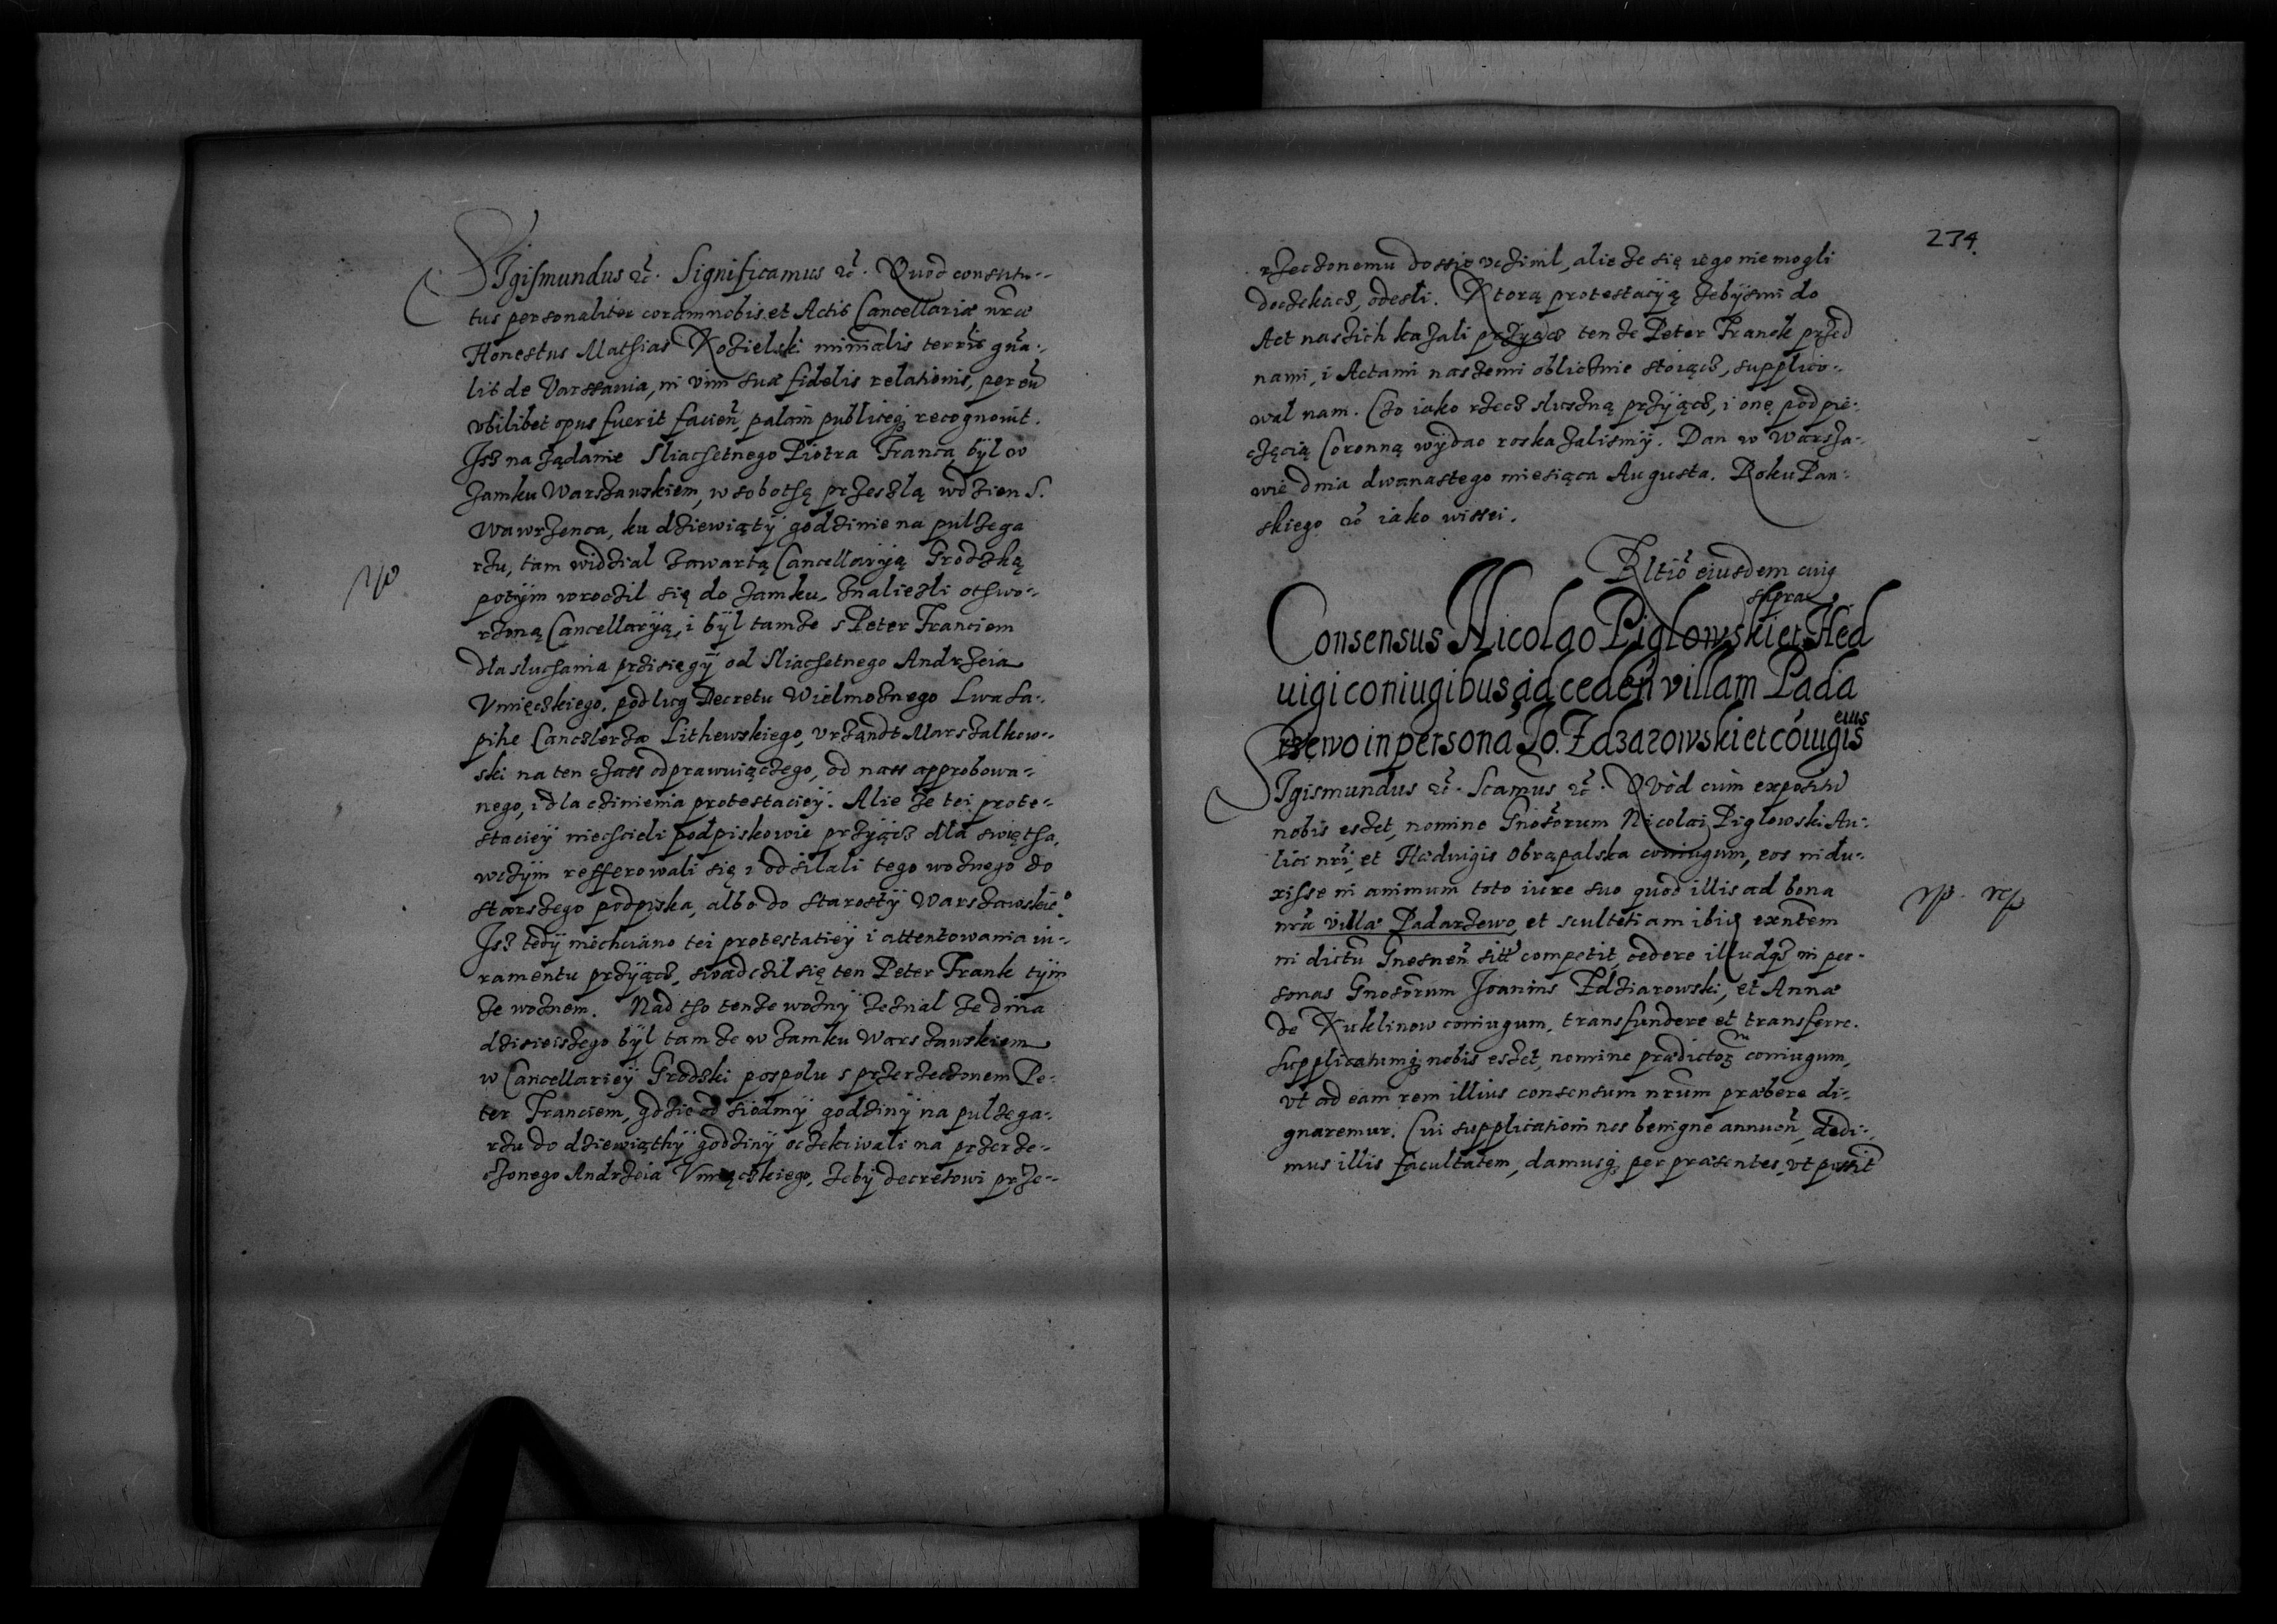 Sigismundus &c. Significamus &c. Quod constitu-
tus personaliter coram nobis et Actis Cancellariæ nr̃æ
Honestus Mathias Kozielski ministerialis terrīs gñā-
lis de Varssavia, in vim suæ fidelis relationis, per eū
vbilibet opus fuerit facień, palam publiceq; recognovit.
Jsz na ządanie Sliachetnego Piotra Franca, był w
zamku Warszawskiem, w sobothą przeszlą w dzien S.
Wawrzenca, ku dziewiąty godzinie na pulzega
rzu, tam widzial zawartą Cancellaryią Grodzką
potym wroczil się do zamku, znaliezli othwo-
rzoną Cancellaryią, i był tamze s Peter Franciem
dla sluchania przisięgy od Sliachetnego Andrzeia
Vmięczkiego, podlug Decretu Wielmoznego Lwa Sa-
pihe Canczlerza Lithewskiego, vrząndt Marszalkow-
ski na ten czass odprawuiączego, od nass approbowa-
nego, i dla czinienia protestaciey. Alie ze tei prote-
staciey niechcieli podpiskowie przyiącz dla swiętha,
wczym refferowali się i odsilali tego woznego do
starszego podpiska, albo do starosty Warszawskie°
Jsz tedy niechciano tei protestatiey i attentowania iu-
ramentu przyiącz, swadczil się ten Peter Frank tym
ze woznem. Nad tho tenze wozny zeznal ze dnia
dzisieiszego był tamze w zamku Warszawskiem
w Cancellariey Grodski pospolu s przerzeczonem Pe-
ter Franciem, gdzie od siodmy godziny na pulzega-
rzu do dziewiąthy godziny oczekiwali na przerze-
czonego Andrzeia Vmięczkiego, zeby decretowi prze-
274
rzeczonemu dossic vczinil, alie ze się iego nie mogli
doczekacz, odesli. Ktorą protestacyią zebysmi do
Act naszich kazali przyiącz tenze Peter Franck przed
nami, i Actami naszemi oblicznie stoiącz, supplico-
wal nam. Czo iako rzecz sluszną przyiącz, i onę pod pie-
częcią Coronną wydac roskazalismy. Dan w Warsza-
wie dnia dwanastego miesiąca Augusta. Roku Pan-
skiego &c iako wissei.
Rltiō eiusdem cuiq
supra
Consensus Nicolao Piglowski et Hed
uigi coniugibus ad cedeń villam Pada
rzewo in persona Jo. Zdzarowski et cōiugis eius
Sigismundus &c. Scamus &c. Quòd cùm expositū
nobis esset, nomine Gnosorum Nicolai Piglowski Au-
lici nr̃i, et Hæduigis Obrapalska coniugum, eos indu-
xisse in animum toto iure suo quod illis ad bona
nr̃a villæ Padarzewo, et scultetiam ibiđ exn̄tem
in dictu Gnesneñ sitt competit, cedere illudq; in per-
sonas Gnosorum Joannis Zdziarowski, et Annæ
de Kuklinow coniugum, transfundere et transferre.
Supplicatumq; nobis esset, nomine prædictor coniugum,
vt ad eam rem illius consensum nr̃um præbere di-
gnaremur. Cui supplicationi nos benigne annueñ, dedi-
mus illis facultatem, damusq; per præsentes, vt possit